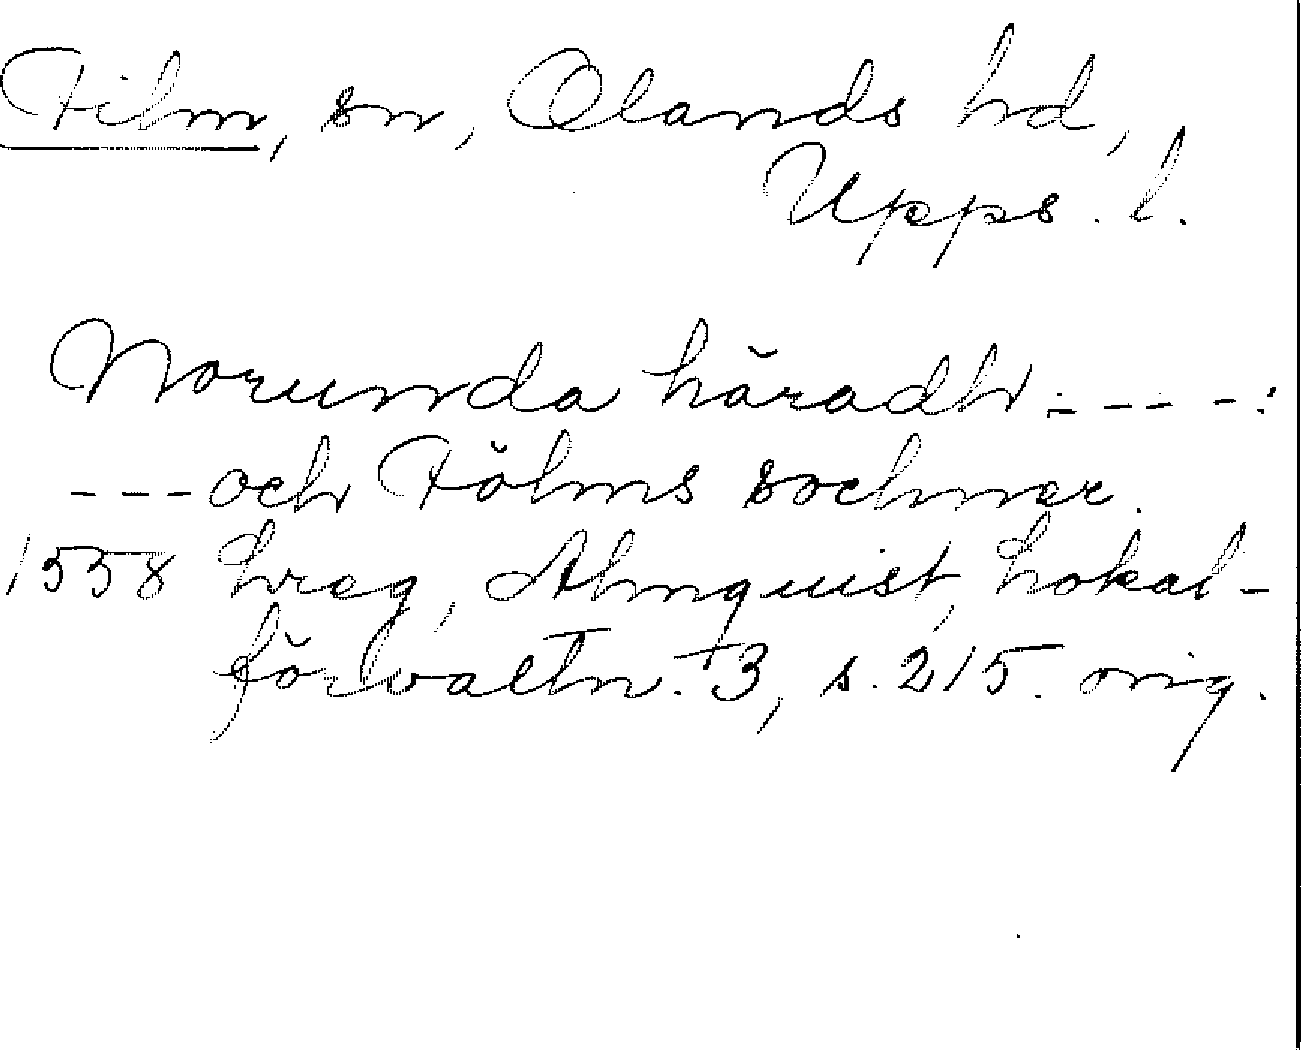 Film, sn, Olands hd,
Upps. l.
Norunda häradh - - - - :
- - - och Fölms sochner.
1558 hreg, Almquist, Lokal-
förvaltn. 3, s. 215. orig.